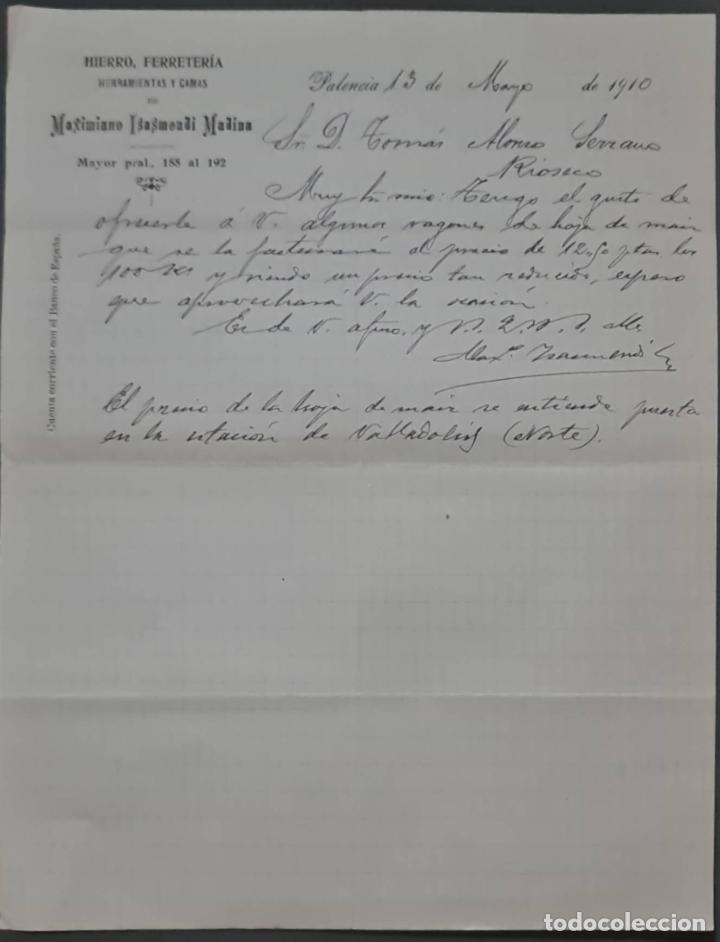 HIERRO, FERRETERÍA
HERRAMIENTAS Y CAMAS
DE
Maximiano Isasmendi Madina
Mayor pral., 188 al 192
Cuenta corriente con el Banco de España.
Palencia 13 de Mayo de 1910
Sr. D. Tomás Alonso Serrano
Rioseco
Muy Sr. mio: Tengo el gusto de
ofrecerle á V. algunos vagones de hoja de maiz
que se la facturará al precio de 12,50 ptas los
100 Ks y siendo un precio tan reducido, espero
que aprovechará V. la ocasión.
Es de V. afmo. y S. S. Q. B. S. M.
Max.º Isasmendi
El precio de la hoja de maiz se entiende puesta
en la estación de Valladolid (Norte).
todocoleccion
todocoleccion.net